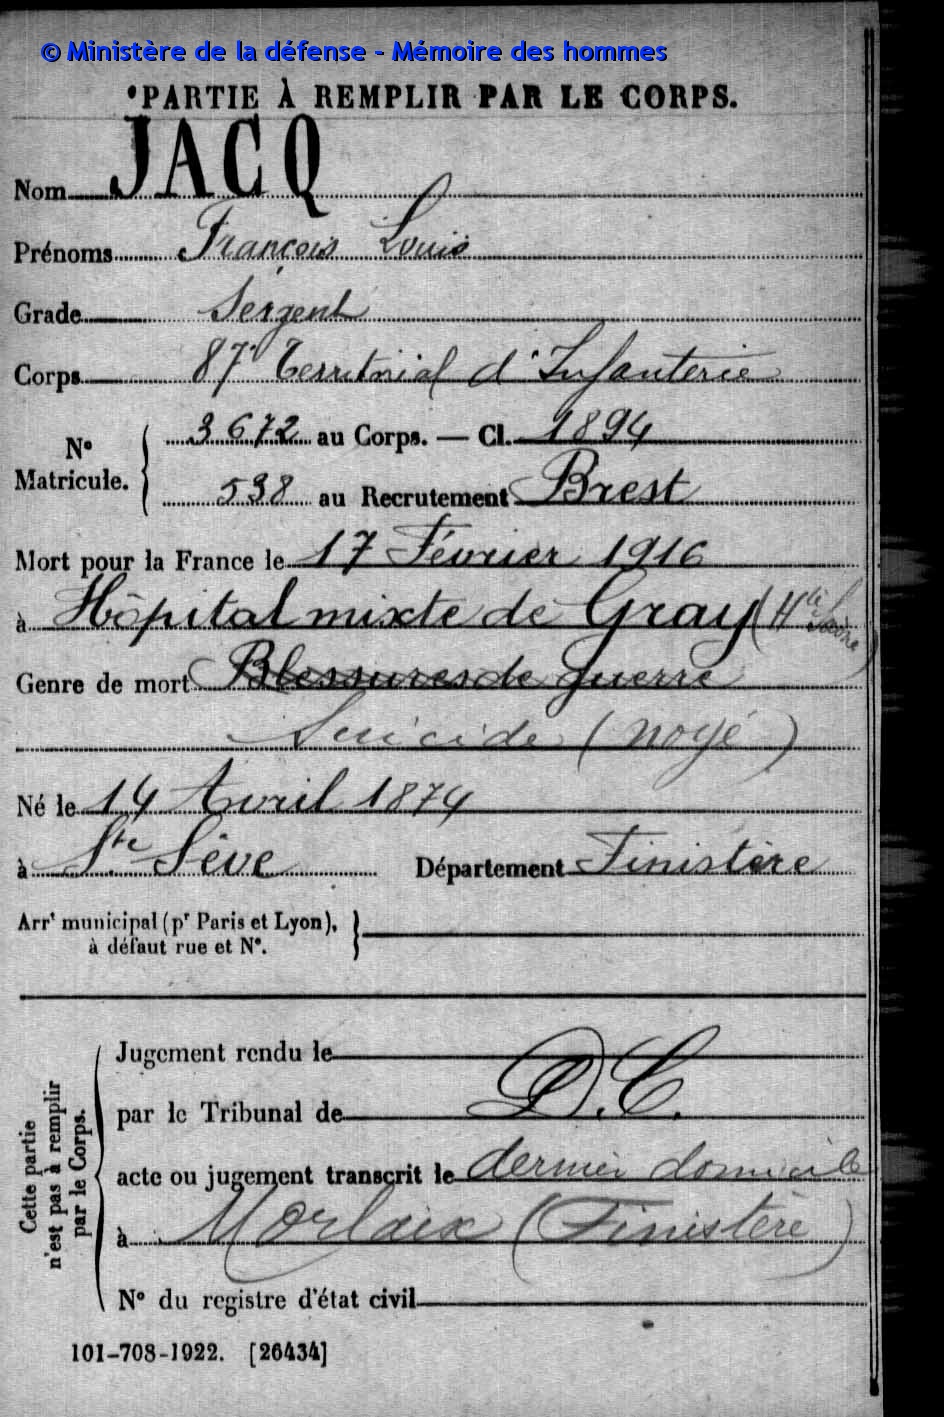 © Ministère de la défense - Mémoire des hommes
PARTIE À REMPLIR PAR LE CORPS.
Nom JACQ
Prénoms François Louis
Grade Sergent
Corps 87e Territorial d'Infanterie
N° Matricule. 3672 au Corps. — Cl. 1894
538 au Recrutement Brest
Mort pour la France le 17 Février 1916
à Hôpital mixte de Gray (Hte Saône)
Genre de mort Blessures de guerre
Suicide (noyé)
Né le 14 Avril 1874
à Ste Sève Département Finistère
Arrt municipal (pr Paris et Lyon),
à défaut rue et N°.
Cette partie
n'est pas à remplir
par le Corps.
Jugement rendu le
par le Tribunal de D.C.
acte ou jugement transcrit le dernier domicile
à Morlaix (Finistère)
N° du registre d'état civil
101-708-1922. [26434]